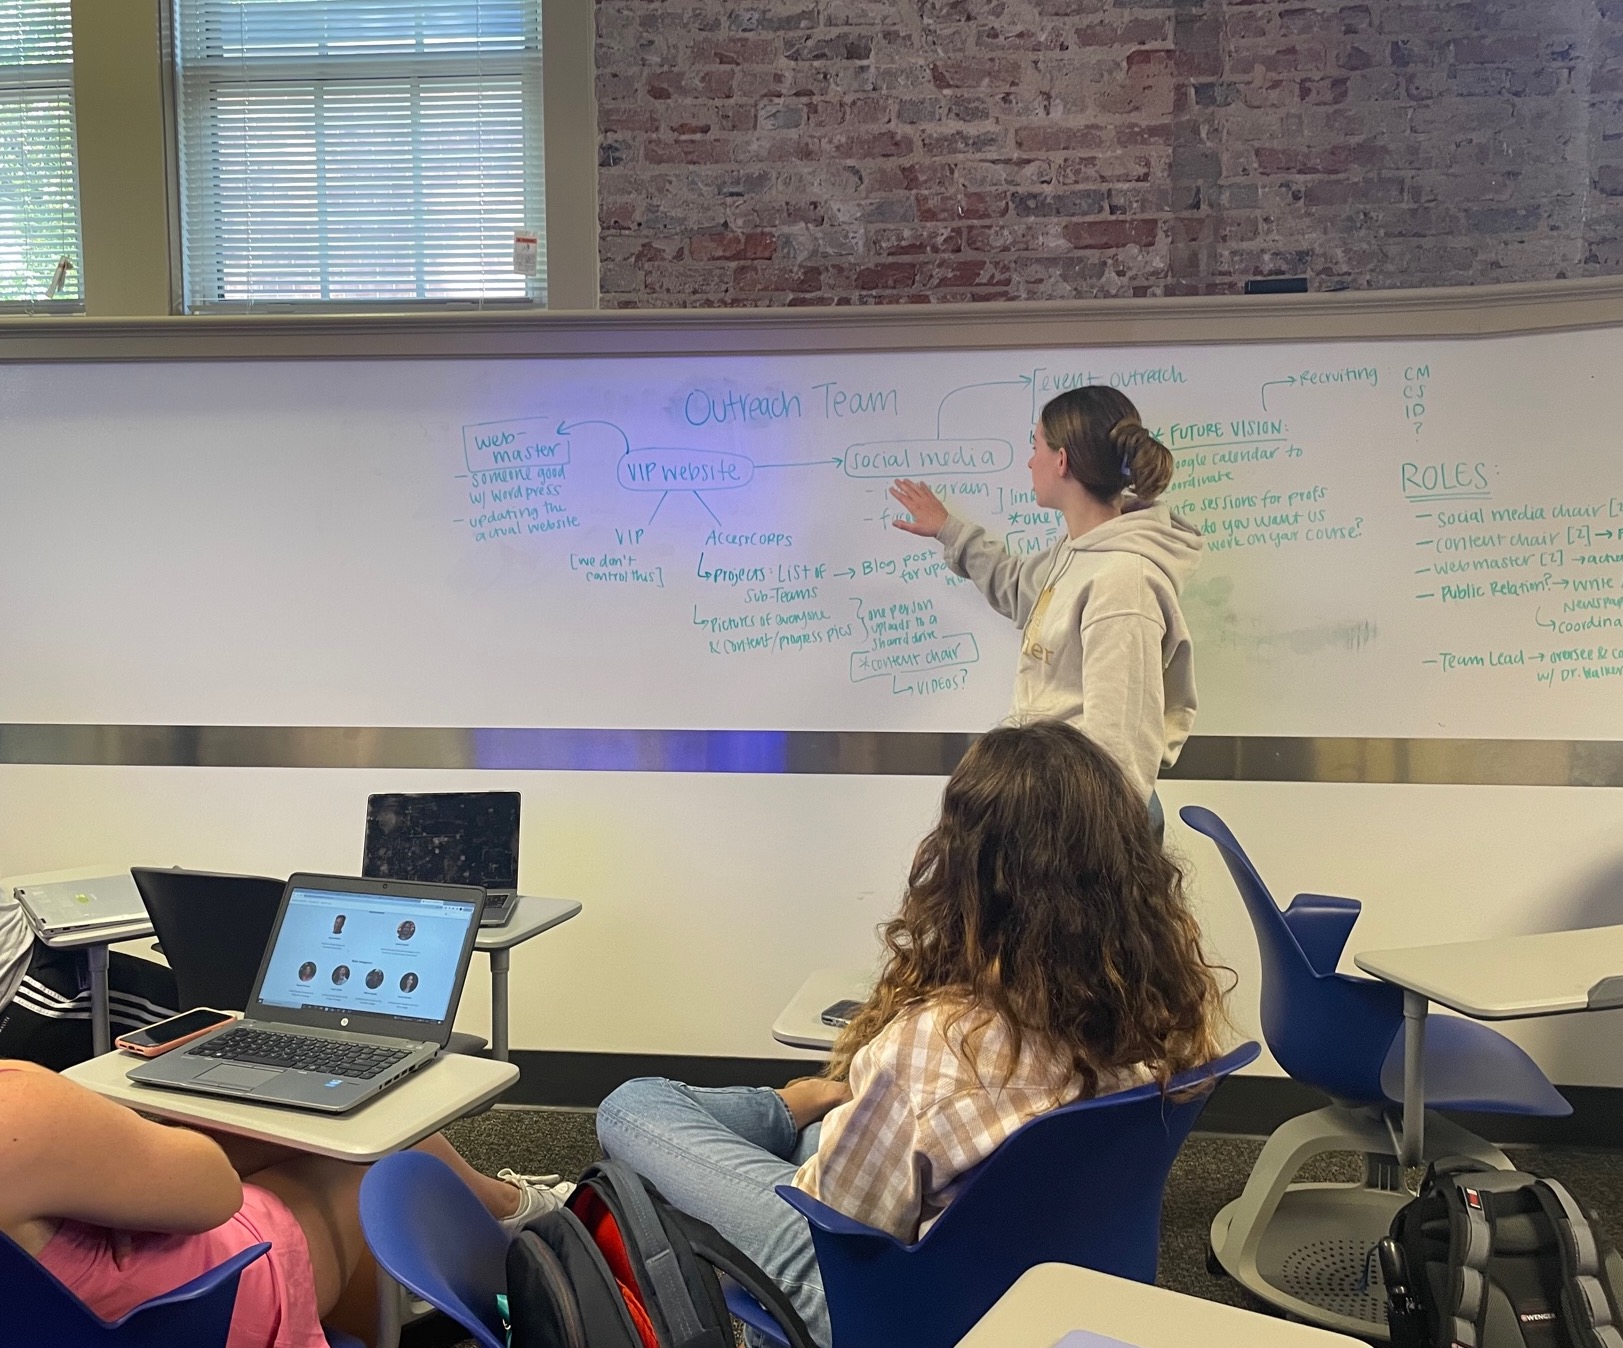 Outreach Team
web-
master
- someone good
w/ wordpress
- updating the
actual website
VIP website
VIP
[we don't
control this]
AccessCORPS
Projects: List of
Sub-Teams
Blog post
for
Pictures of everyone
& content/progress pics
one person
uploads to a
shared drive
*content chair
VIDEOS?
social media
*one
SM
event outreach
* FUTURE VISION:
calendar to
coordinate
sessions for profs
do you want us
work on your course?
Recruiting:
CM
CS
ID
?
ROLES:
- Social media chair
- content chair [2] →
- webmaster [2] →
- Public Relation? → write
coordina
- Team Lead → oversee &
w/ Dr. Walker
hp
WENGER